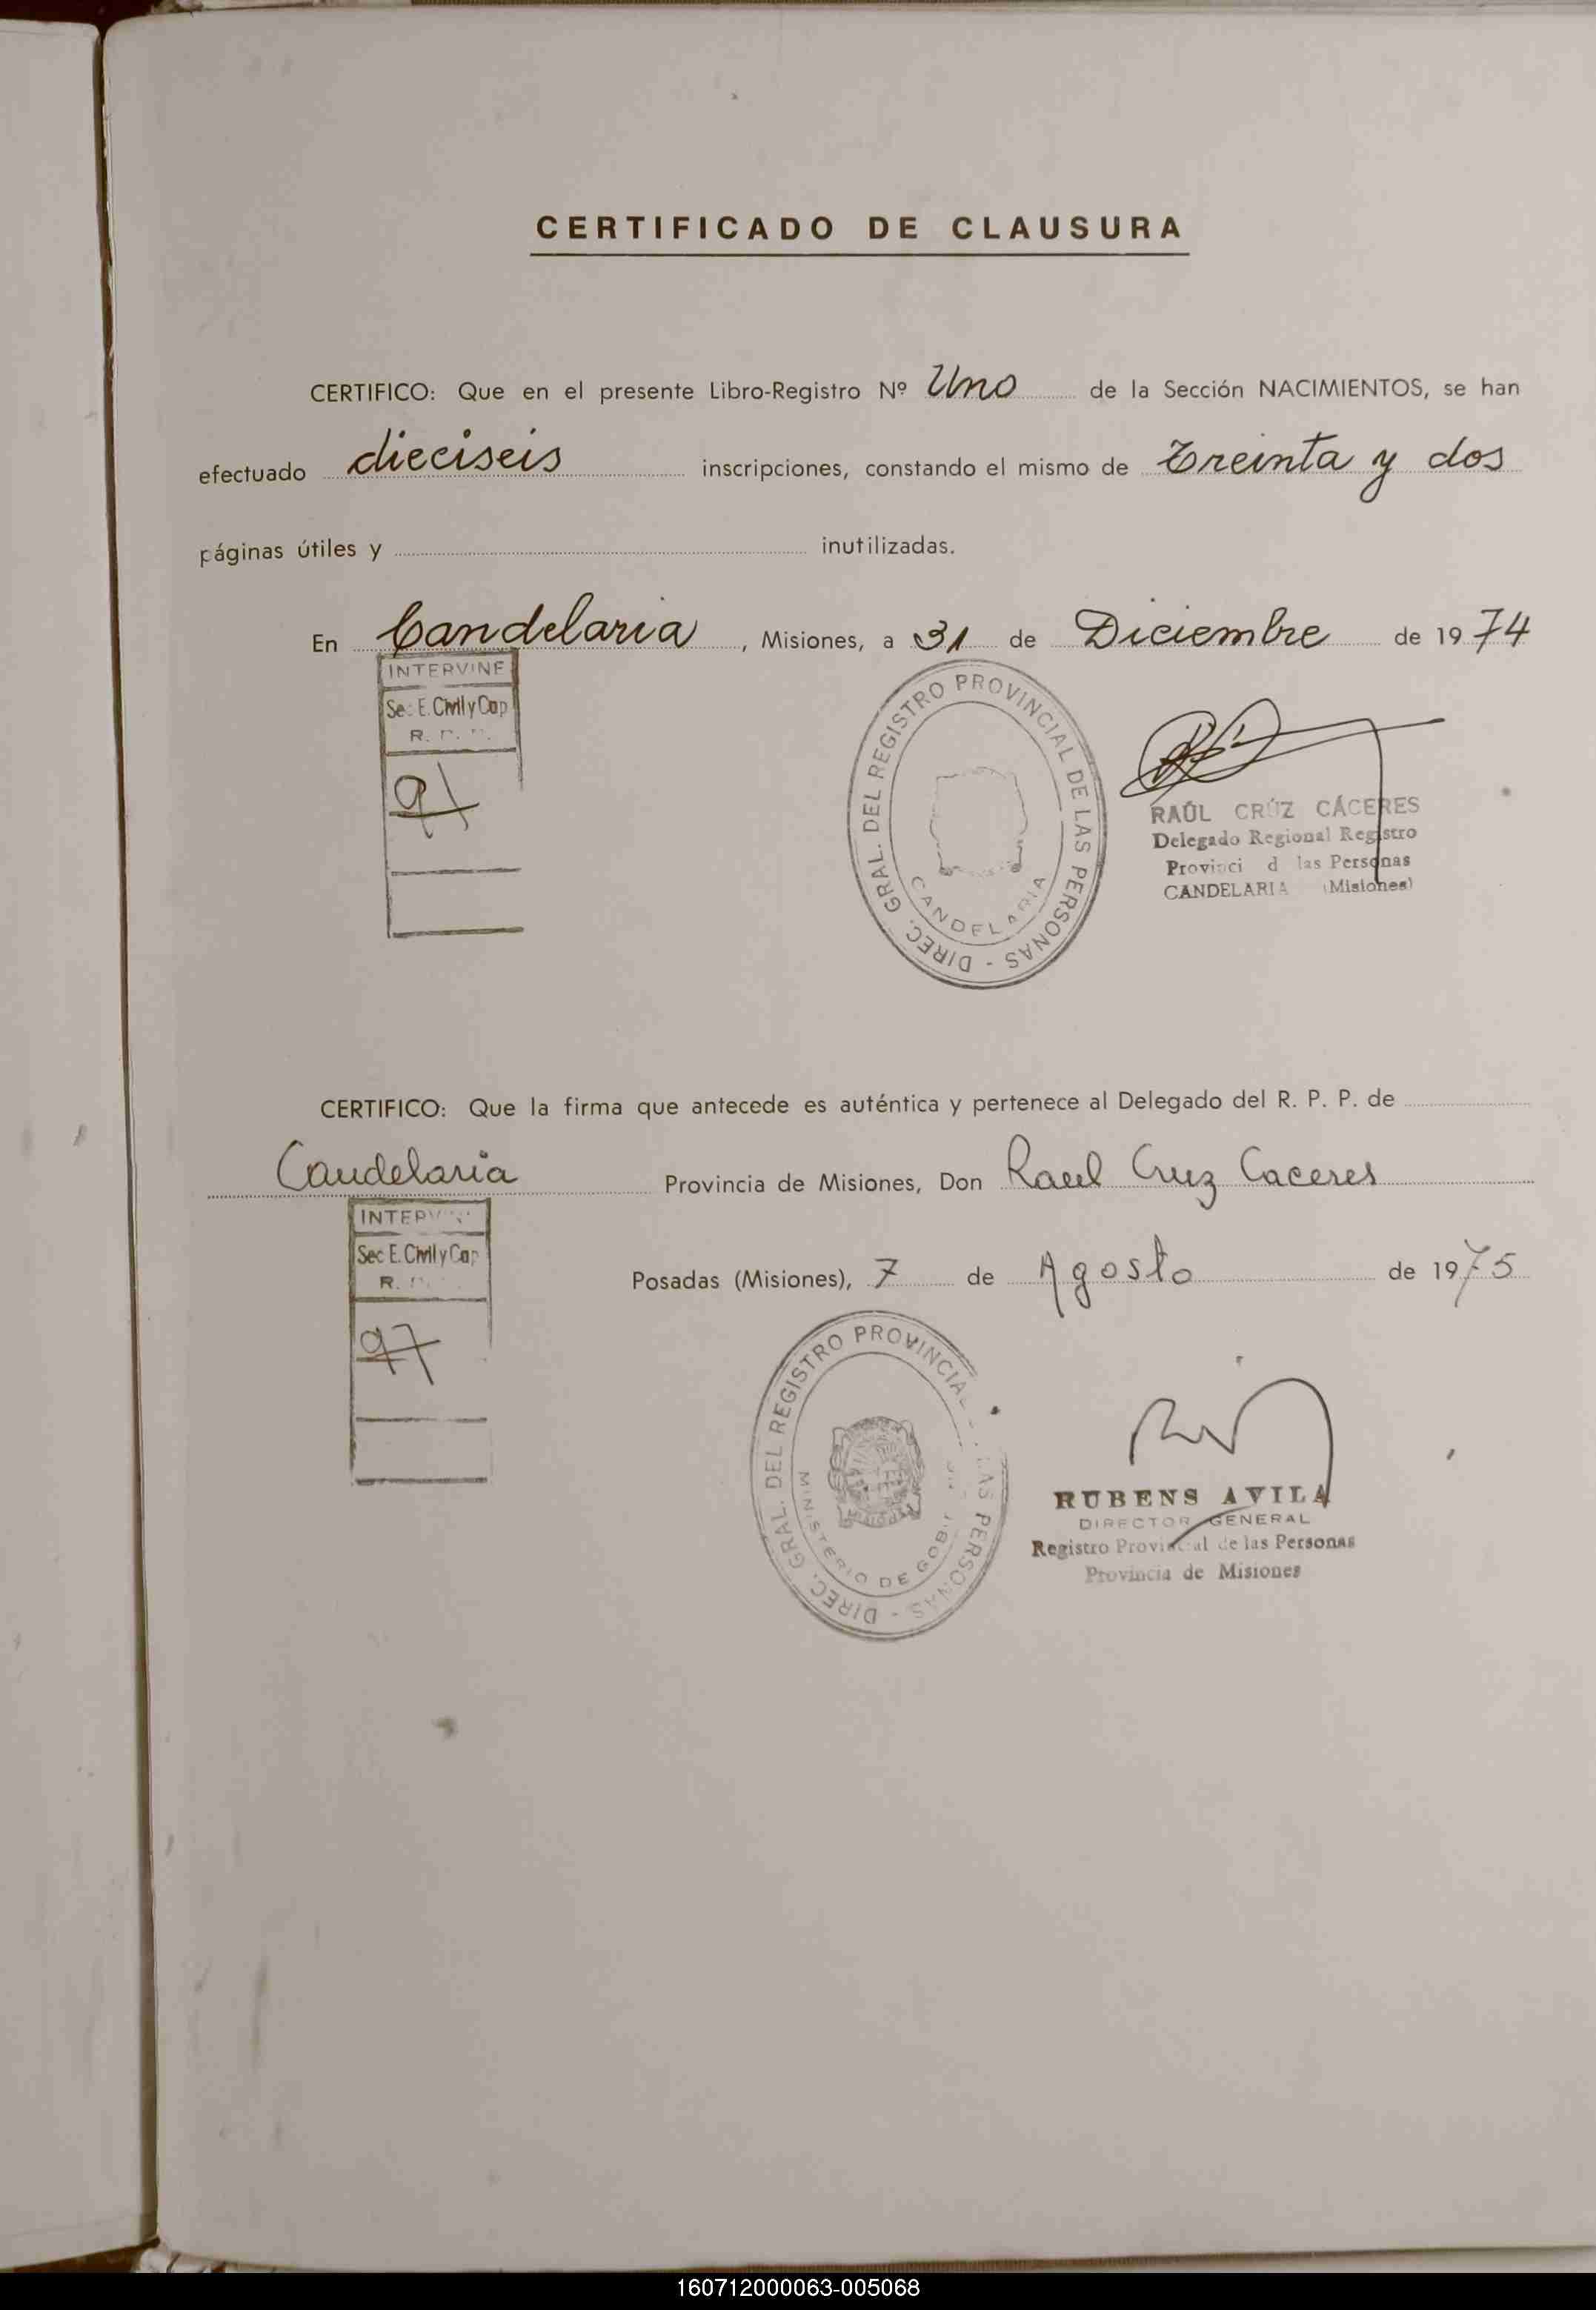 CERTIFICADO DE CLAUSURA
CERTIFICO: Que en el presente Libro-Registro Nº Uno de la Sección NACIMIENTOS, se han
efectuado dieciseis inscripciones, constando el mismo de treinta y dos
páginas útiles y inutilizadas.
En Candelaria, Misiones, a 31 de Diciembre de 1974
INTERVINE
Sec E. Civil y Cap
R.
DIREC. GRAL. DEL REGISTRO PROVINCIAL DE LAS PERSONAS -
CANDELARIA
RAÚL CRÚZ CÁCERES
Delegado Regional Registro
Provinci d las Personas
CANDELARIA (Misiones)
CERTIFICO: Que la firma que antecede es auténtica y pertenece al Delegado del R. P. P. de
Candelaria Provincia de Misiones, Don Raul Cruz Caceres
INTERV
Sec E. Civil y Cap
R.
Posadas (Misiones), 7 de Agosto de 1975
DIREC. GRAL. DEL REGISTRO PROVINCIAL LAS PERSONAS -
MINISTERIO DE GOBI
RUBENS AVILA
DIRECTOR GENERAL
Registro Provincial de las Personas
Provincia de Misiones
160712000063-005068